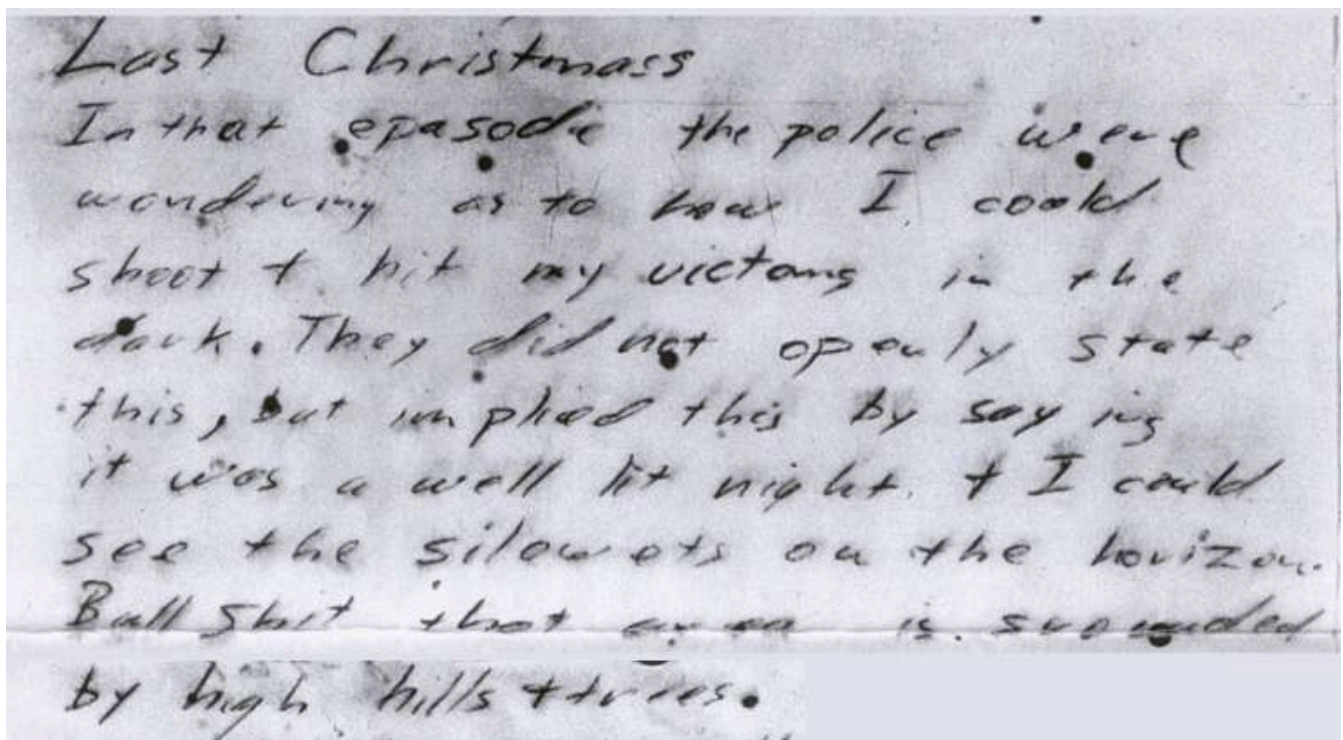 Last Christmass
In that epasode the police were
wondering as to how I could
shoot + hit my victoms in the
dark. They did not openly state
this, but implied this by saying
it was a well lit night + I could
see the silowets on the horizon.
Bullshit that area is srounded
by high hills + trees.